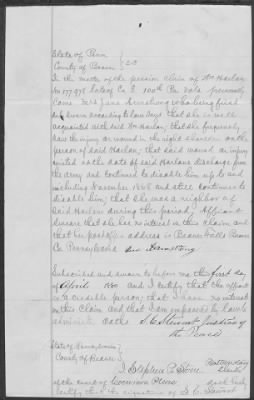 State of Penn }
County of Beaver } SS
In the matter of the pension claim of Wm Harlan
No 177.978 late of Co E 100th Pa Vols personally
came Mrs Jane Armstrong who being first
duly sworn according to law says that she is well
acquainted with said Wm Harlan, that she frequently
saw the injury or wound in the right shoulder on the
person of said Harlan; that said wound or injury
existed on the date of said Harlans discharge from
the army and continued to disable him up to and
including November 1868 and still continues to
disable him; that she was a neighbor of
said Harlan during this period; Affiant
swears that she has no interest in this claim and
that her postoffice address is Beaver Falls Beaver
Co Pennsylvania Armstrong
Subscribed and sworn to before me this first day
of April 1880 And I certify that the affiant
is a credible person; that I have no interest
in this Claim and that I am empowered by law to
administer Oaths S. C. Stewart Justice of
the Peace
State of Pennsylvania }
County of Beaver }
I Stephen P. Stone Prothonotary
of the Court of Common Pleas
certify that the signature of S. C.